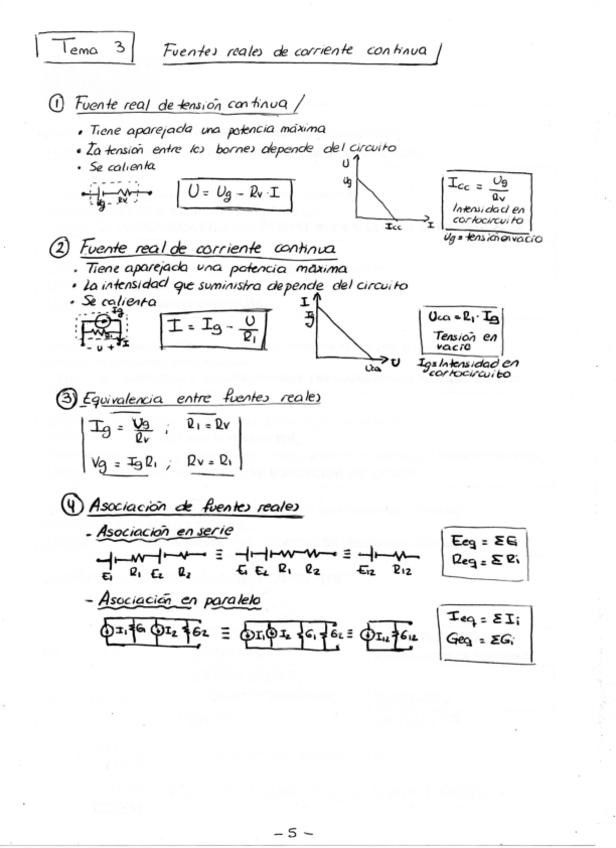 Tema 3 Fuentes reales de corriente continua
① Fuente real de tensión continua
• Tiene aparejada una potencia máxima
• La tensión entre los bornes depende del circuito
• Se calienta
Ug Rv
U = Ug - Rv · I
U
Ug
Icc I
Icc = Ug/Rv
Intensidad en
cortocircuito
Ug = tensión en vacio
② Fuente real de corriente continua
• Tiene aparejada una potencia máxima
• La intensidad que suministra depende del circuito
• Se calienta
Ig
- U + I
I = Ig - U/R1
I
Ig
Uca U
Uca = R1 · Ig
Tensión en
vacio
Ig = Intensidad en
cortocircuito
③ Equivalencia entre fuentes reales
Ig = Ug/Rv ; R1 = Rv
Vg = Ig R1 ; Rv = R1
④ Asociación de fuentes reales
- Asociación en serie
E1 R1 E2 R2 ≡ E1 E2 R1 R2 ≡ E12 R12
Eeq = ΣEi
Req = ΣRi
- Asociación en paralelo
I1 G1 I2 G2 ≡ I1 I2 G1 G2 ≡ I12 G12
Ieq = ΣIi
Geq = ΣGi
- 5 -